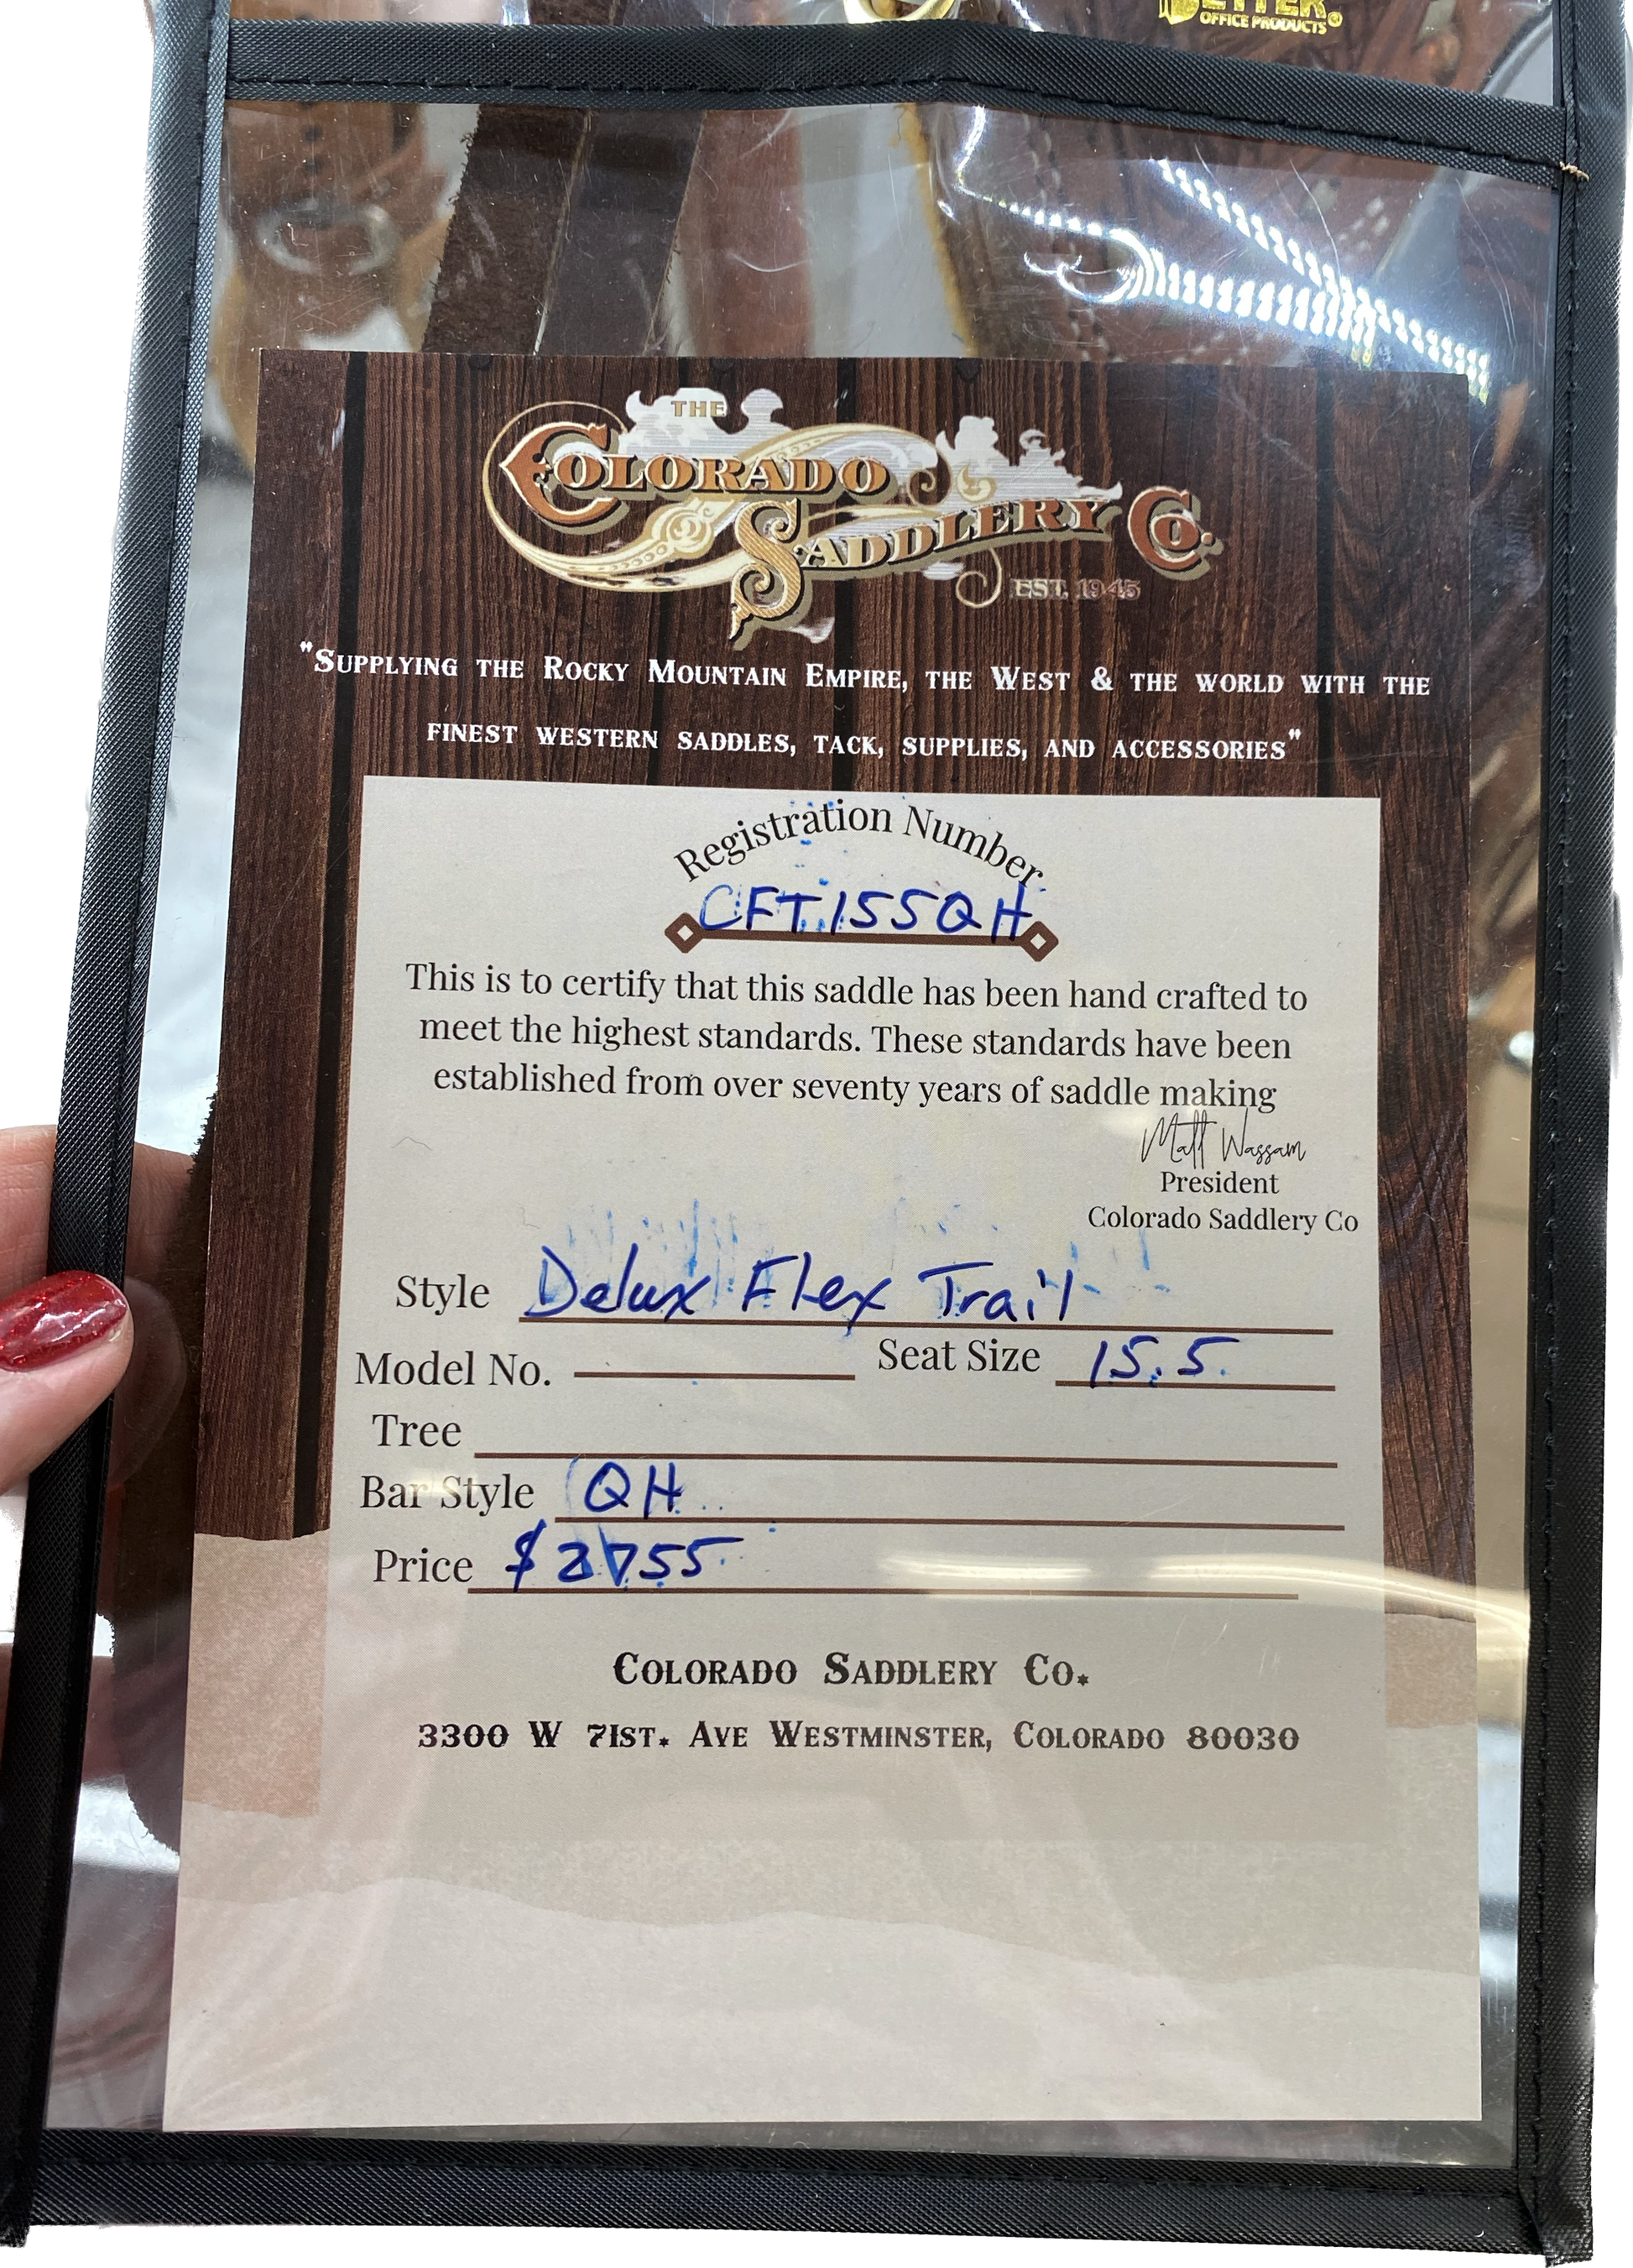 OFFICE PRODUCTS
THE
COLORADO
SADDLERY CO.
EST. 1945
"SUPPLYING THE ROCKY MOUNTAIN EMPIRE, THE WEST & THE WORLD WITH THE
FINEST WESTERN SADDLES, TACK, SUPPLIES, AND ACCESSORIES"
Registration Number
CFT155QH
This is to certify that this saddle has been hand crafted to
meet the highest standards. These standards have been
established from over seventy years of saddle making
Matt Wassam
President
Colorado Saddlery Co
Style Delux Flex Trail
Model No. Seat Size 15.5
Tree
Bar Style QH
Price $2755
COLORADO SADDLERY CO.
3300 W 71ST. AVE WESTMINSTER, COLORADO 80030